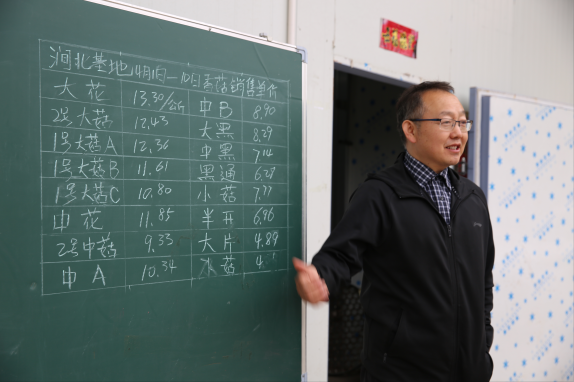 涧北基地4月1日—10日香菇销售单价
大花 13.30/公斤 中B 8.90
2号大菇 12.43 大黑 8.29
1号大菇A 12.36 中黑 7.14
1号大菇B 11.61 黑通 6.29
1号大菇C 10.80 小菇 7.77
中花 11.85 半开 6.96
2号中菇 9.33 大片 4.89
中A 10.34 水菇